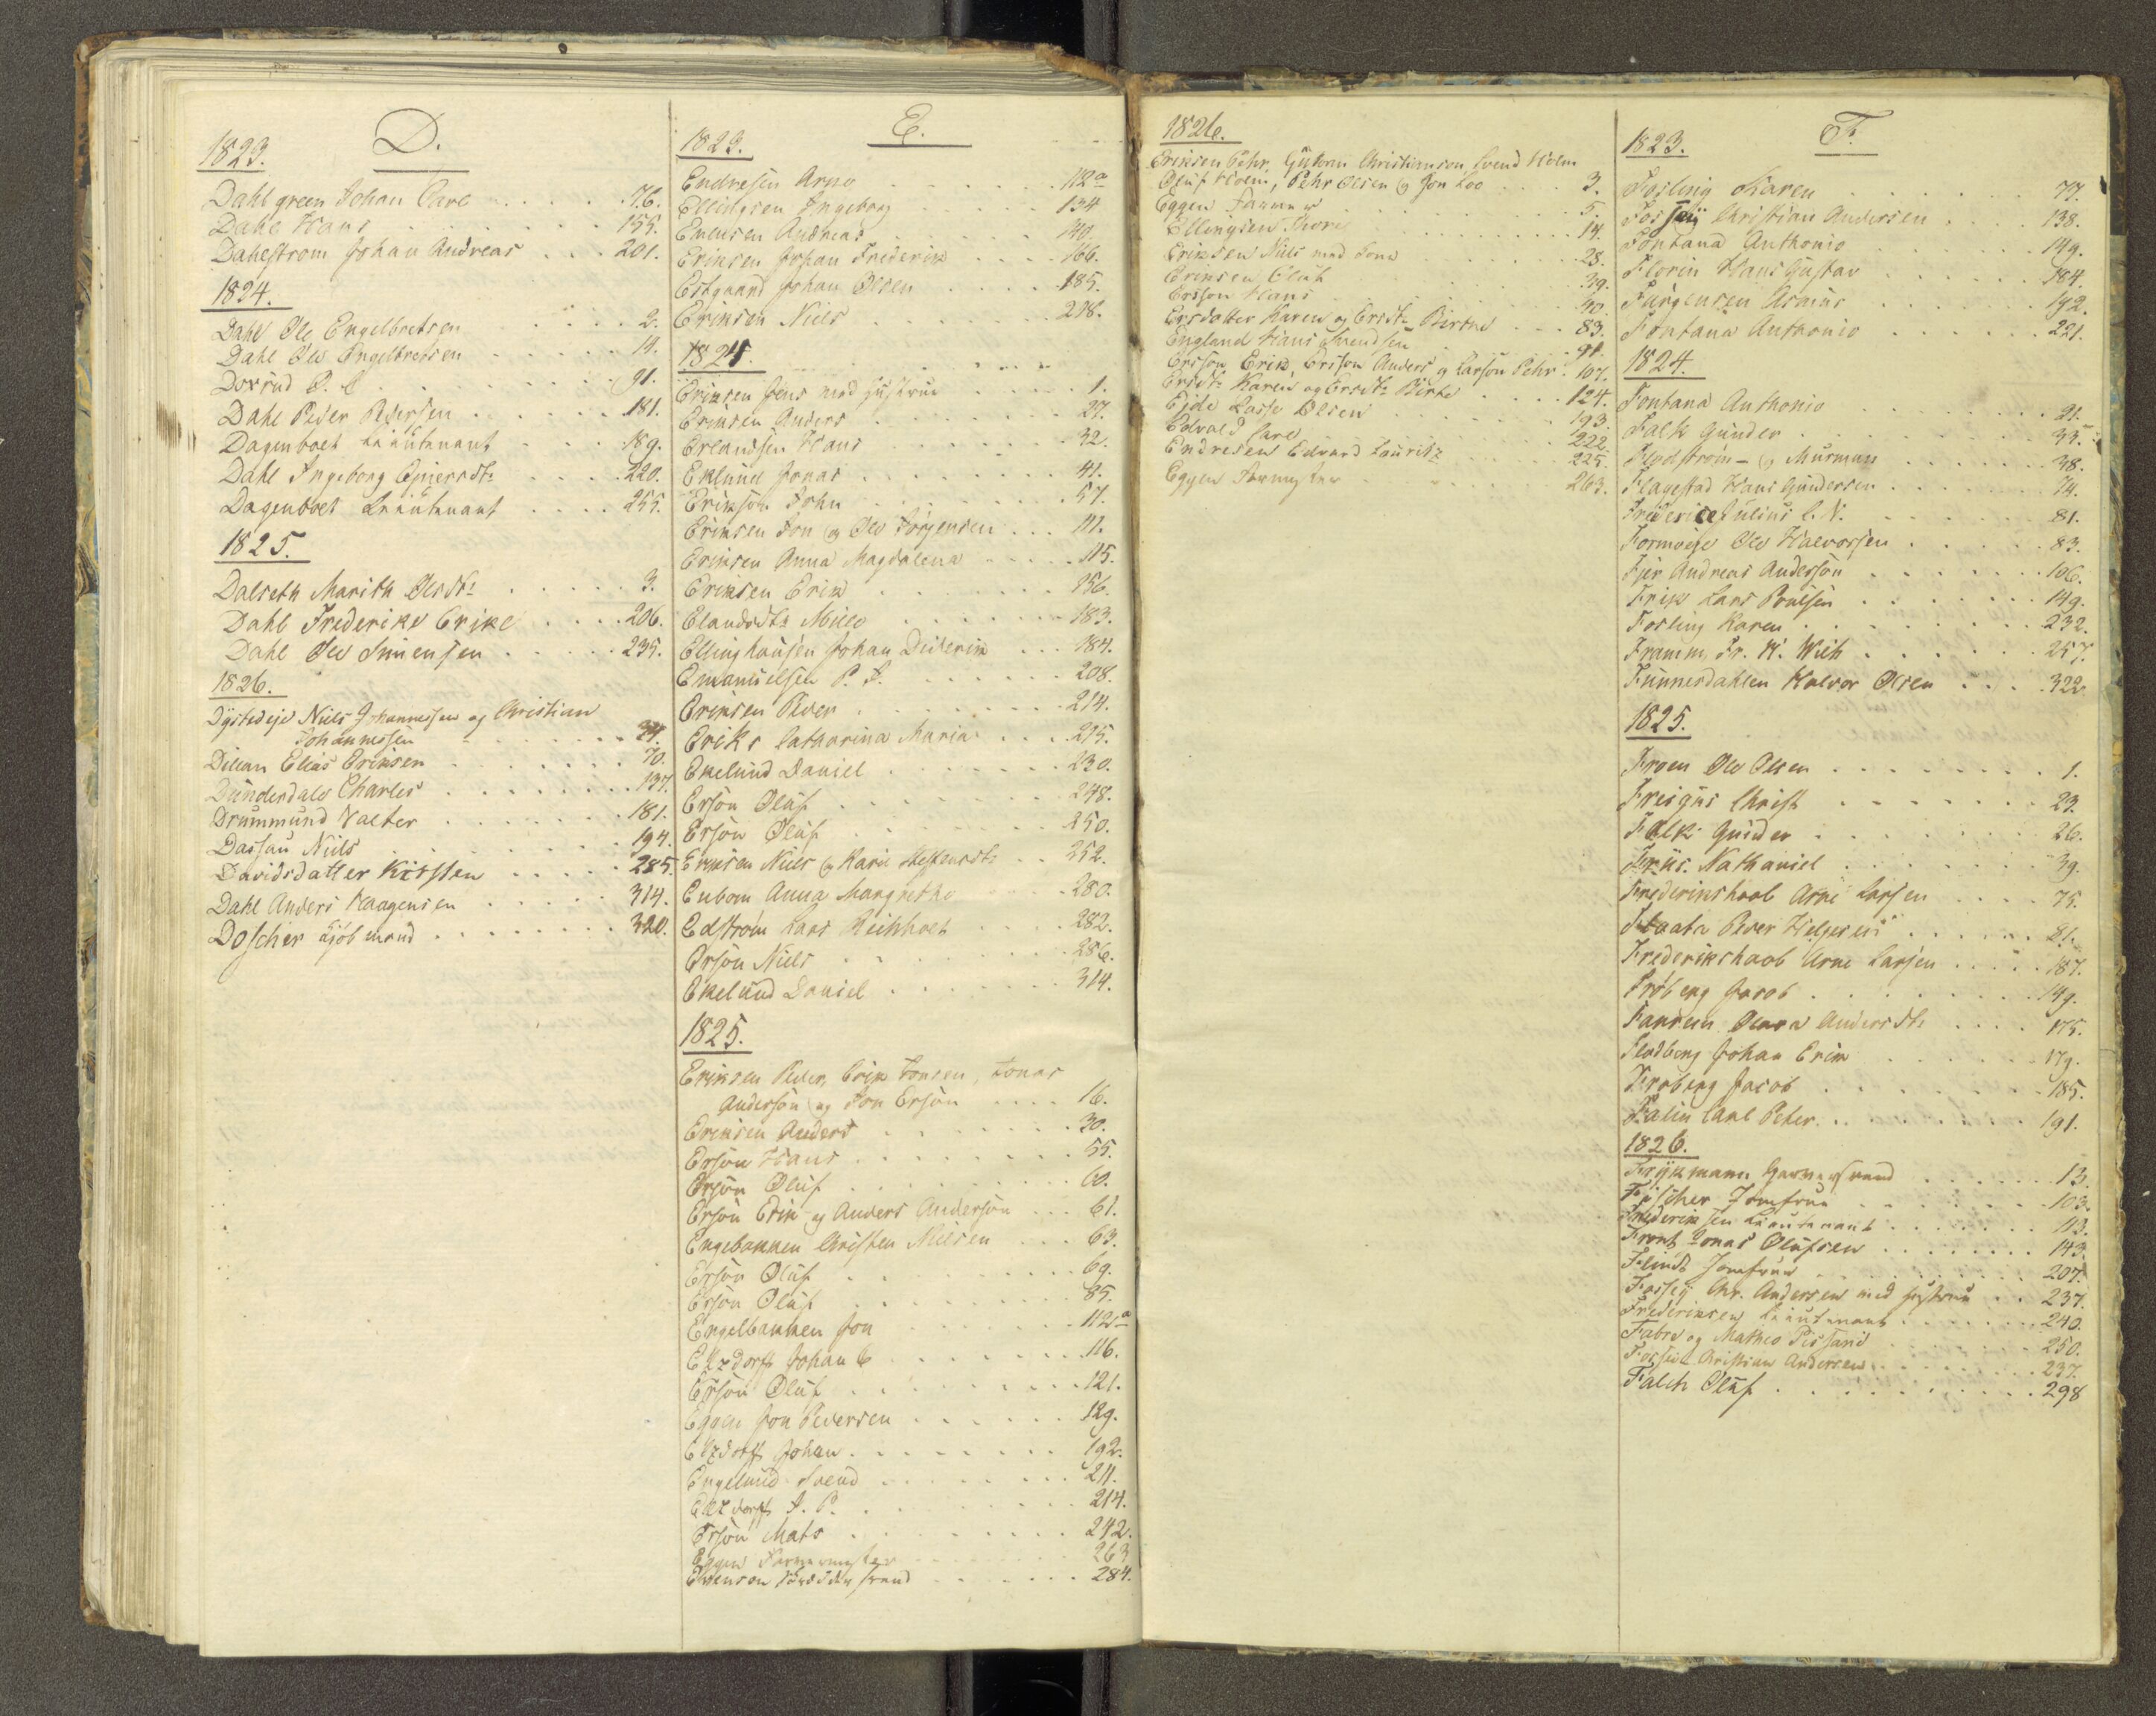 D.
1823.
Dahlgreen Johan Carl . . . . 76.
Dahl Hans . . . . 155.
Dahlstrom Johan Andreas . . . 201.
1824.
Dahl Ole Engelbretsen . . . . 2.
Dahl Ole Engelbretsen . . . . 14.
P. C. . . . . 91.
Dahl Peder Pedersen . . . . 181.
Lieutenant . . . . 189.
Dahl Ingeborg . . . . 220.
Lieutenant . . . . 255.
1825.
Dalseth Marith Olsdtr . . . . 3.
Dahl Frederike Erike . . . . 206.
Dahl Ole Simensen . . . . 235.
1826.
Niels Johannessen og Christian
Johannessen . . . . 34.
Elias Eriksen . . . . 70.
Dunderdale Charles . . . . 137.
Drummund Valter . . . . 181.
Dassau Niels . . . . 194.
Davidsdatter Kirsten . . . . 285.
Dahl Anders Haagensen . . . . 314.
Doscher Kjöbmand . . . . 320.
E.
1823.
Endresen Arne . . . . 112a
Ellingsen Ingeborg . . . . 134
Evensen Andreas . . . . 140.
Eriksen Johan Frederik . . . . 166.
Estgaard Johan Olsen . . . . 185.
Eriksen Niels . . . . 218.
1824.
Eriksen Jens med Hustrue . . . . 1.
Eriksen Anders . . . . 27.
Erlandsen Hans . . . . 32.
Eklund Jonas . . . . 41.
Erikson John . . . . 57.
Eriksen Jon og Ole Jörgensen . . . 111.
Eriksen Anna Magdalena . . . . 115.
Eriksen Erik . . . . 156.
Elandsdtr . . . . 183.
Ellinghausen Johan Diderik . . . 184.
Emanuelsen P. J. . . . . 208.
Eriksen Peder . . . . 214.
Eriks Catharina Maria . . . 215.
Ekelund Daniel . . . . 230.
Erson Oluf . . . . 248.
Erson Oluf . . . . 250.
Eriksen Niels og Kari Steffensdtr . . 252.
Enbom Anna Margrethe . . . . 280.
Edström Lars Reinholt . . . . 282.
Erson Niels . . . . 286.
Ekelund Daniel . . . . 314.
1825.
Eriksen Peder, Erik Jonsen, Jonas
Anderson og Jon Erson . . . . 16.
Eriksen Anders . . . . 30.
Erson Hans . . . . 55.
Erson Oluf . . . . 60.
Erson Erik og Anders Anderson . . . 61.
Engebakken Christen Nielsen . . . 63.
Erson Oluf . . . . 69.
Erson Oluf . . . . 85.
Engelbakken Jon . . . . 112a
Johan C . . . . 116.
Erson Oluf . . . . 121.
Eggen Jon Pedersen . . . . 129.
Johan . . . . 192.
Engelund Svend . . . . 211.
J. P. . . . . 214.
Erson Mats . . . . 242.
Eggen Farvermester . . . . 263
Evenson Skrædder Svend . . . . 284.
1826.
Eriksen Pehr, Guttorm Christianson, Svend Holm
Oluf Holm, Pehr Olsen og Jon Loo . . . 3.
Eggen Farver . . . . 5.
Ellingsen Thore . . . . 14.
Eriksen Niels med Kone . . . . 28.
Eriksen Oluf . . . . 39.
Ersson Hans . . . . 40.
Ersdatter Karen og Ersdtr Birthe . . . 83.
England Hans Svendsen . . . . 91.
Ersson Erik, Ersson Anders og Larson Pehr . 107.
Ersdtr Karen og Ersdtr Birthe . . . . 124.
Eide Lasse Olsen . . . . 193.
Edvald Carl . . . . 222.
Endresen Edvard Lauritz . . . . 225.
Eggen Farvemester . . . . 263.
F.
1823.
Fosling Karen . . . . 77.
Christian Andersen . . . . 138.
Fontana Anthonio . . . . 149.
Florin Hans Gustav . . . . 184.
Fürgensen Asmus . . . . 192.
Fontana Anthonio . . . . 221.
1824.
Fontana Anthonio . . . . 21.
Falk Gunder . . . . 35.
Flodstrom - og Murman . . . . 38.
Flagestad Hans Gundersen . . . . 74.
Frederice Julius C. N. . . . . 81.
Formoeje Ole Halvorsen . . . . 83.
Fjer Andreas Anderson . . . . 106.
Frik Lars Poulsen . . . . 149.
Fosling Karen . . . . 232.
Framm, Fr. H. Wilh . . . . 257.
Funnesdahlen Halvor Olsen . . . 322.
1825.
Froen Ole Olsen . . . . 1.
Freigus Christ . . . . 23.
Falk Gunder . . . . 26.
Friis Nathaniel . . . . 39.
Frederikshaab Arne Larsen . . . . 75.
Peder Helgesen . . . . 81.
Frederikshaab Arne Larsen . . . . 187.
Fröberg Jacob . . . . 149.
Andersdtr . . . . 175.
Flodberg Johan Erik . . . . 179.
Froberg Jacob . . . . 185.
Falin Carl Peter . . . . 191.
1826.
Frykmann Garversvend . . . . 13.
Fischer Jomfrue . . . . 103.
Frederiksen Lieutenant . . . . 113.
Front Jonas Olufsen . . . . 143.
Flindt Jomfrue . . . . 207.
Fosseij Chr. Andersen med Hustrue . . 237.
Frederiksen Lieutenant . . . . 240.
Fabre og Matheo Pissani . . . . 250.
Christian Andersen . . . . 237.
Falck Oluf . . . . 298